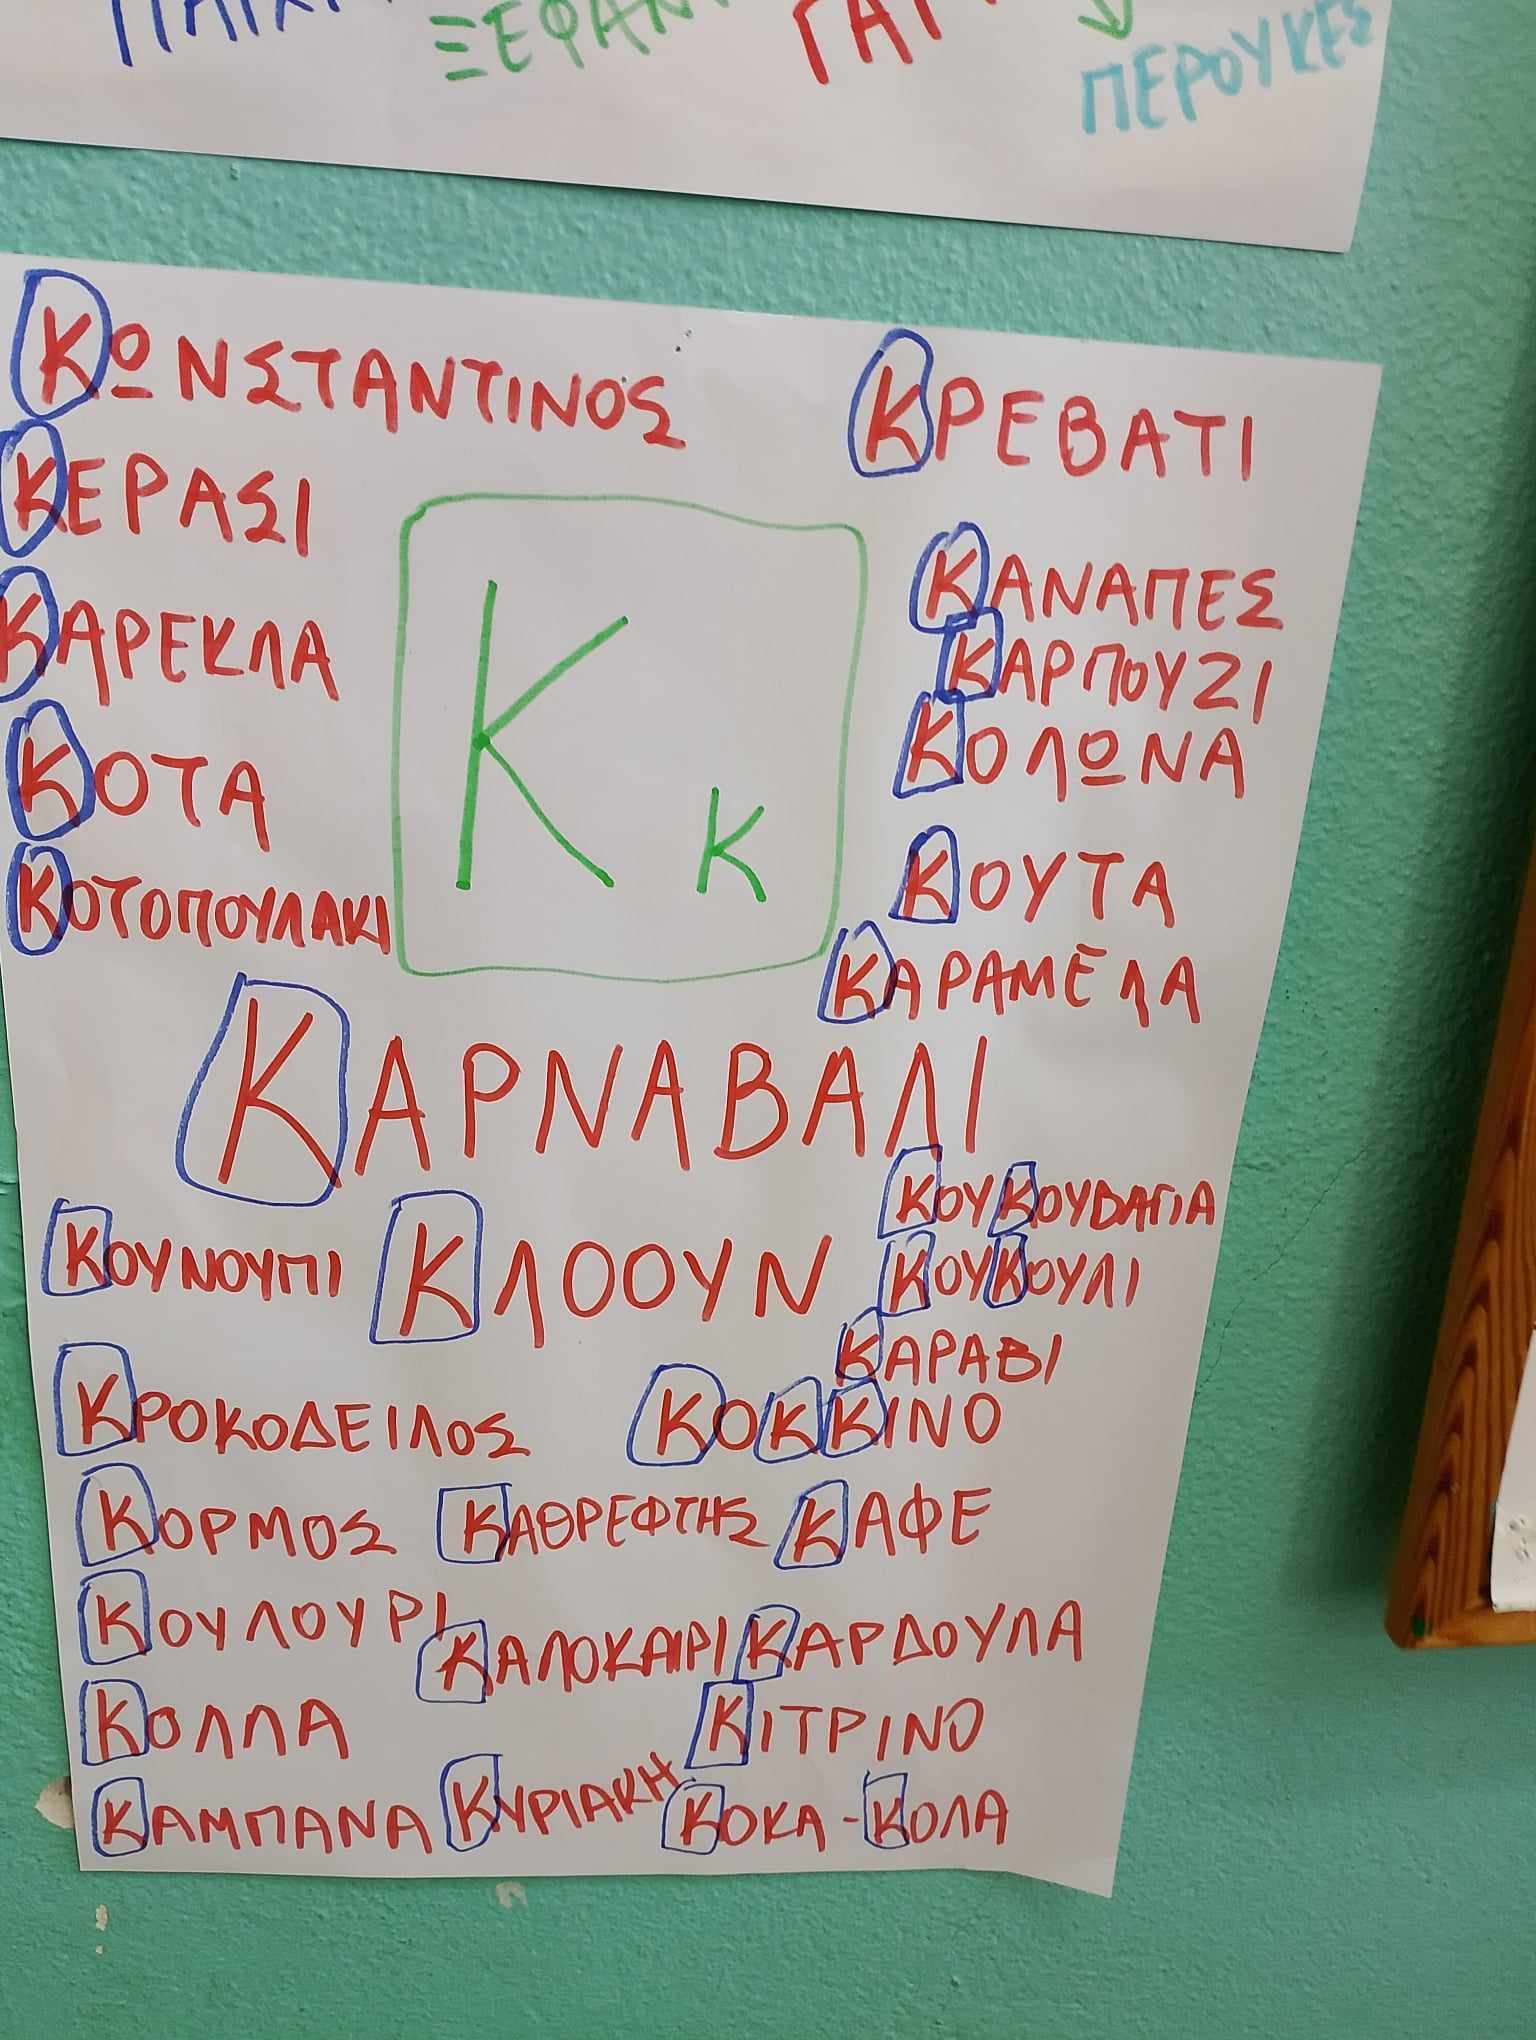 ΠΕΡΟΥΚΕΣ
ΚΩΝΣΤΑΝΤΙΝΟΣ ΚΡΕΒΑΤΙ
ΚΕΡΑΣΙ
ΚΑΡΕΚΛΑ
ΚΟΤΑ
ΚΟΤΟΠΟΥΛΑΚΙ
Κ κ
ΚΑΝΑΠΕΣ
ΚΑΡΠΟΥΖΙ
ΚΟΛΩΝΑ
ΚΟΥΤΑ
ΚΑΡΑΜΕΛΑ
ΚΑΡΝΑΒΑΛΙ
ΚΟΥΚΟΥΒΑΓΙΑ
ΚΟΥΝΟΥΠΙ ΚΛΟΟΥΝ ΚΟΥΚΟΥΛΙ
ΚΑΡΑΒΙ
ΚΡΟΚΟΔΕΙΛΟΣ ΚΟΚΚΙΝΟ
ΚΟΡΜΟΣ ΚΑΘΡΕΦΤΗΣ ΚΑΦΕ
ΚΟΥΛΟΥΡΙ ΚΑΛΟΚΑΙΡΙ ΚΑΡΔΟΥΛΑ
ΚΟΛΛΑ ΚΙΤΡΙΝΟ
ΚΑΜΠΑΝΑ ΚΥΡΙΑΚΗ ΚΟΚΑ-ΚΟΛΑ